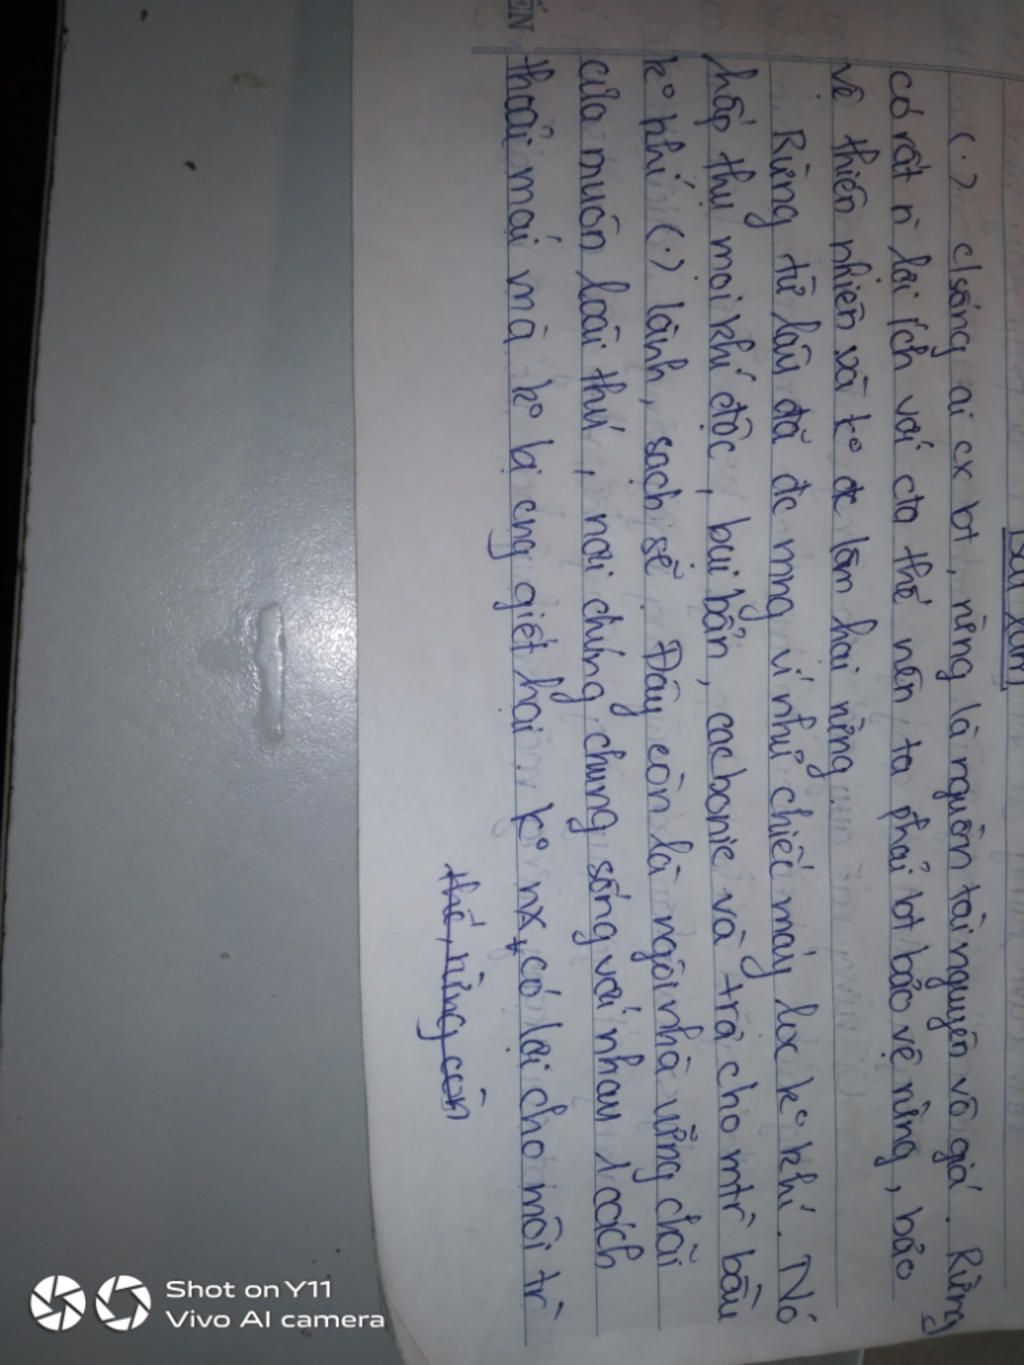 Bài làm
(.) c/sống ai cx bt, rừng là nguồn tài nguyên vô giá. Rừng
có rất n̄ lợi ích với cta thế nên ta phải bt bảo vệ rừng, bảo
vệ thiên nhiên và kº đc làm hại rừng
Rừng từ lâu đã đc mng ví như chiếc máy lọc kº khí. Nó
hấp thụ mọi khí độc, bụi bẩn, cacbonic và trả cho mtr̀ bầu
kº khí (.) lành, sạch sẽ. Đây còn là ngôi nhà vững chãi
của muôn loài thú, nơi chúng chung sống với nhau 1 cách
thoải mái mà kº bị cng giết hại. kº nx, có lợi cho môi tr̀
thế, rừng còn
ẾN
Shot on Y11
Vivo AI camera